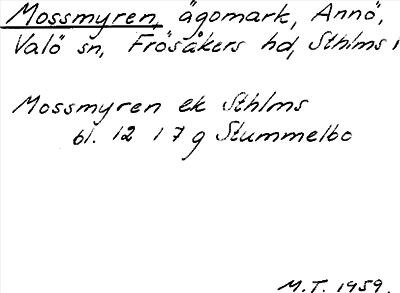 Mossmyren, ägomark, Annö,
Valö sn, Frösåkers hd, Sthlms l
Mossmyren ek Sthlms
bl. 12 I 7 g Stummelbo
M.T. 1959.